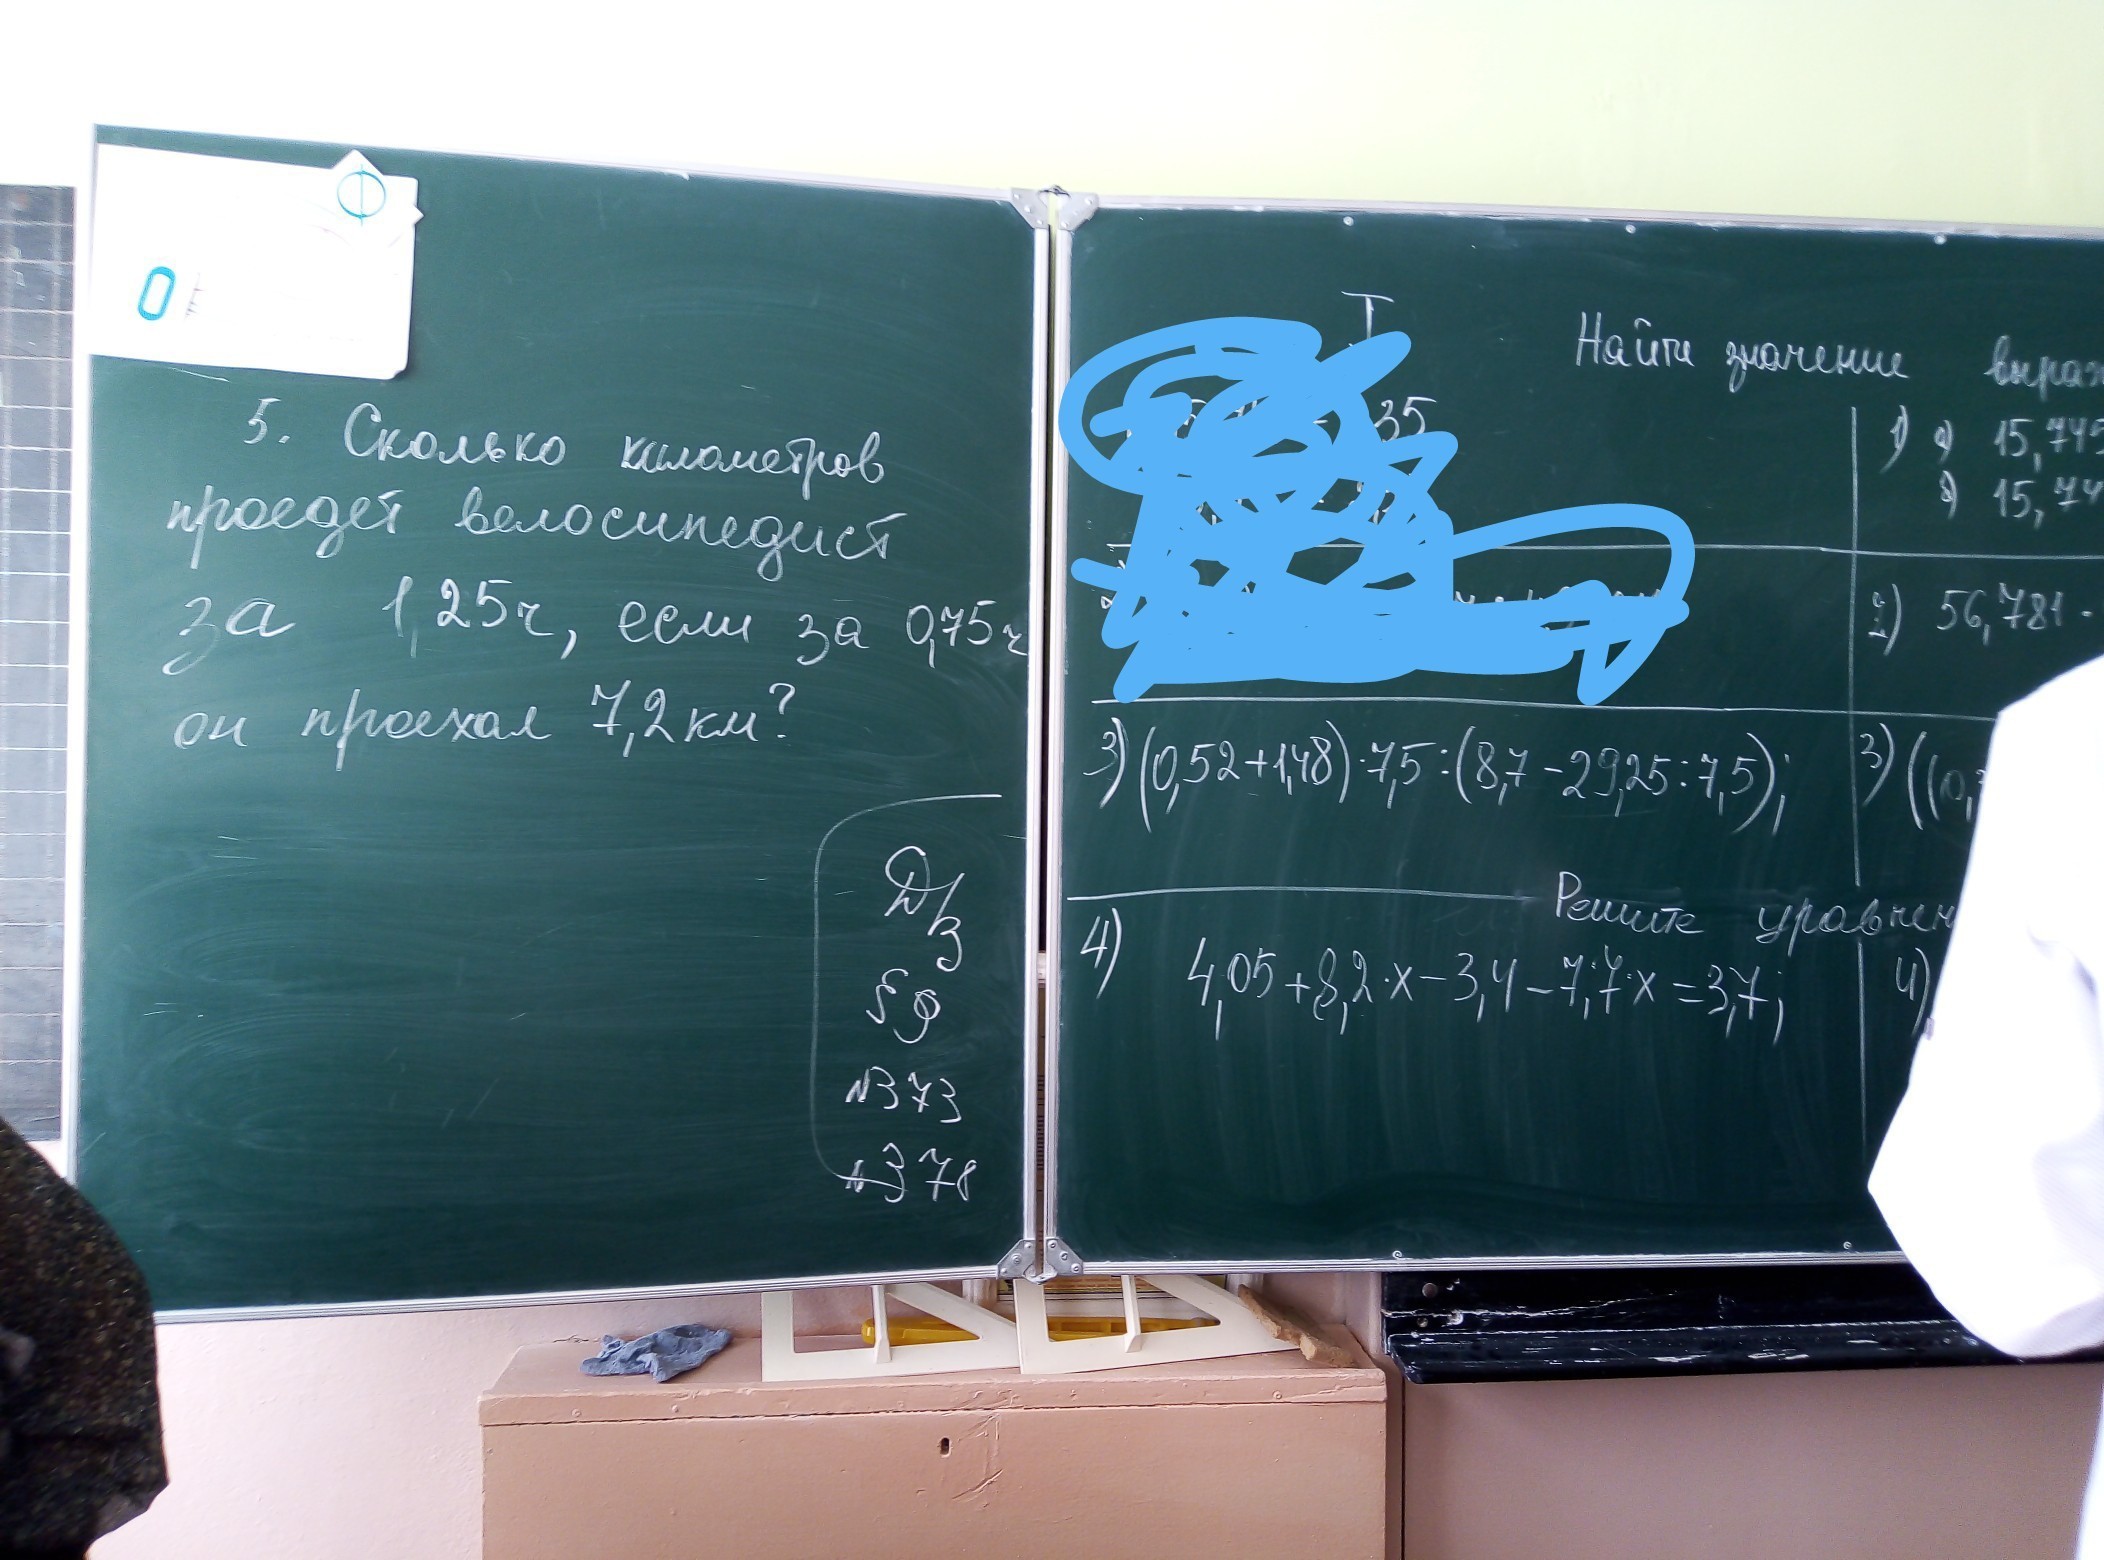 5. Сколько километров
проедет велосипедист
за 1,25ч, если за 0,75ч
он проехал 7,2км?
Д/З
№373
№378
I
Найти значение выраж
35
1) а) 15,745
б) 15,74
2) 56,781 -
3) (0,52+1,48)·7,5:(8,7-29,25:7,5);
3) ((0,
Решите уравнен
4) 4,05+8,2·x-3,4-7,7·x=3,7;
4)